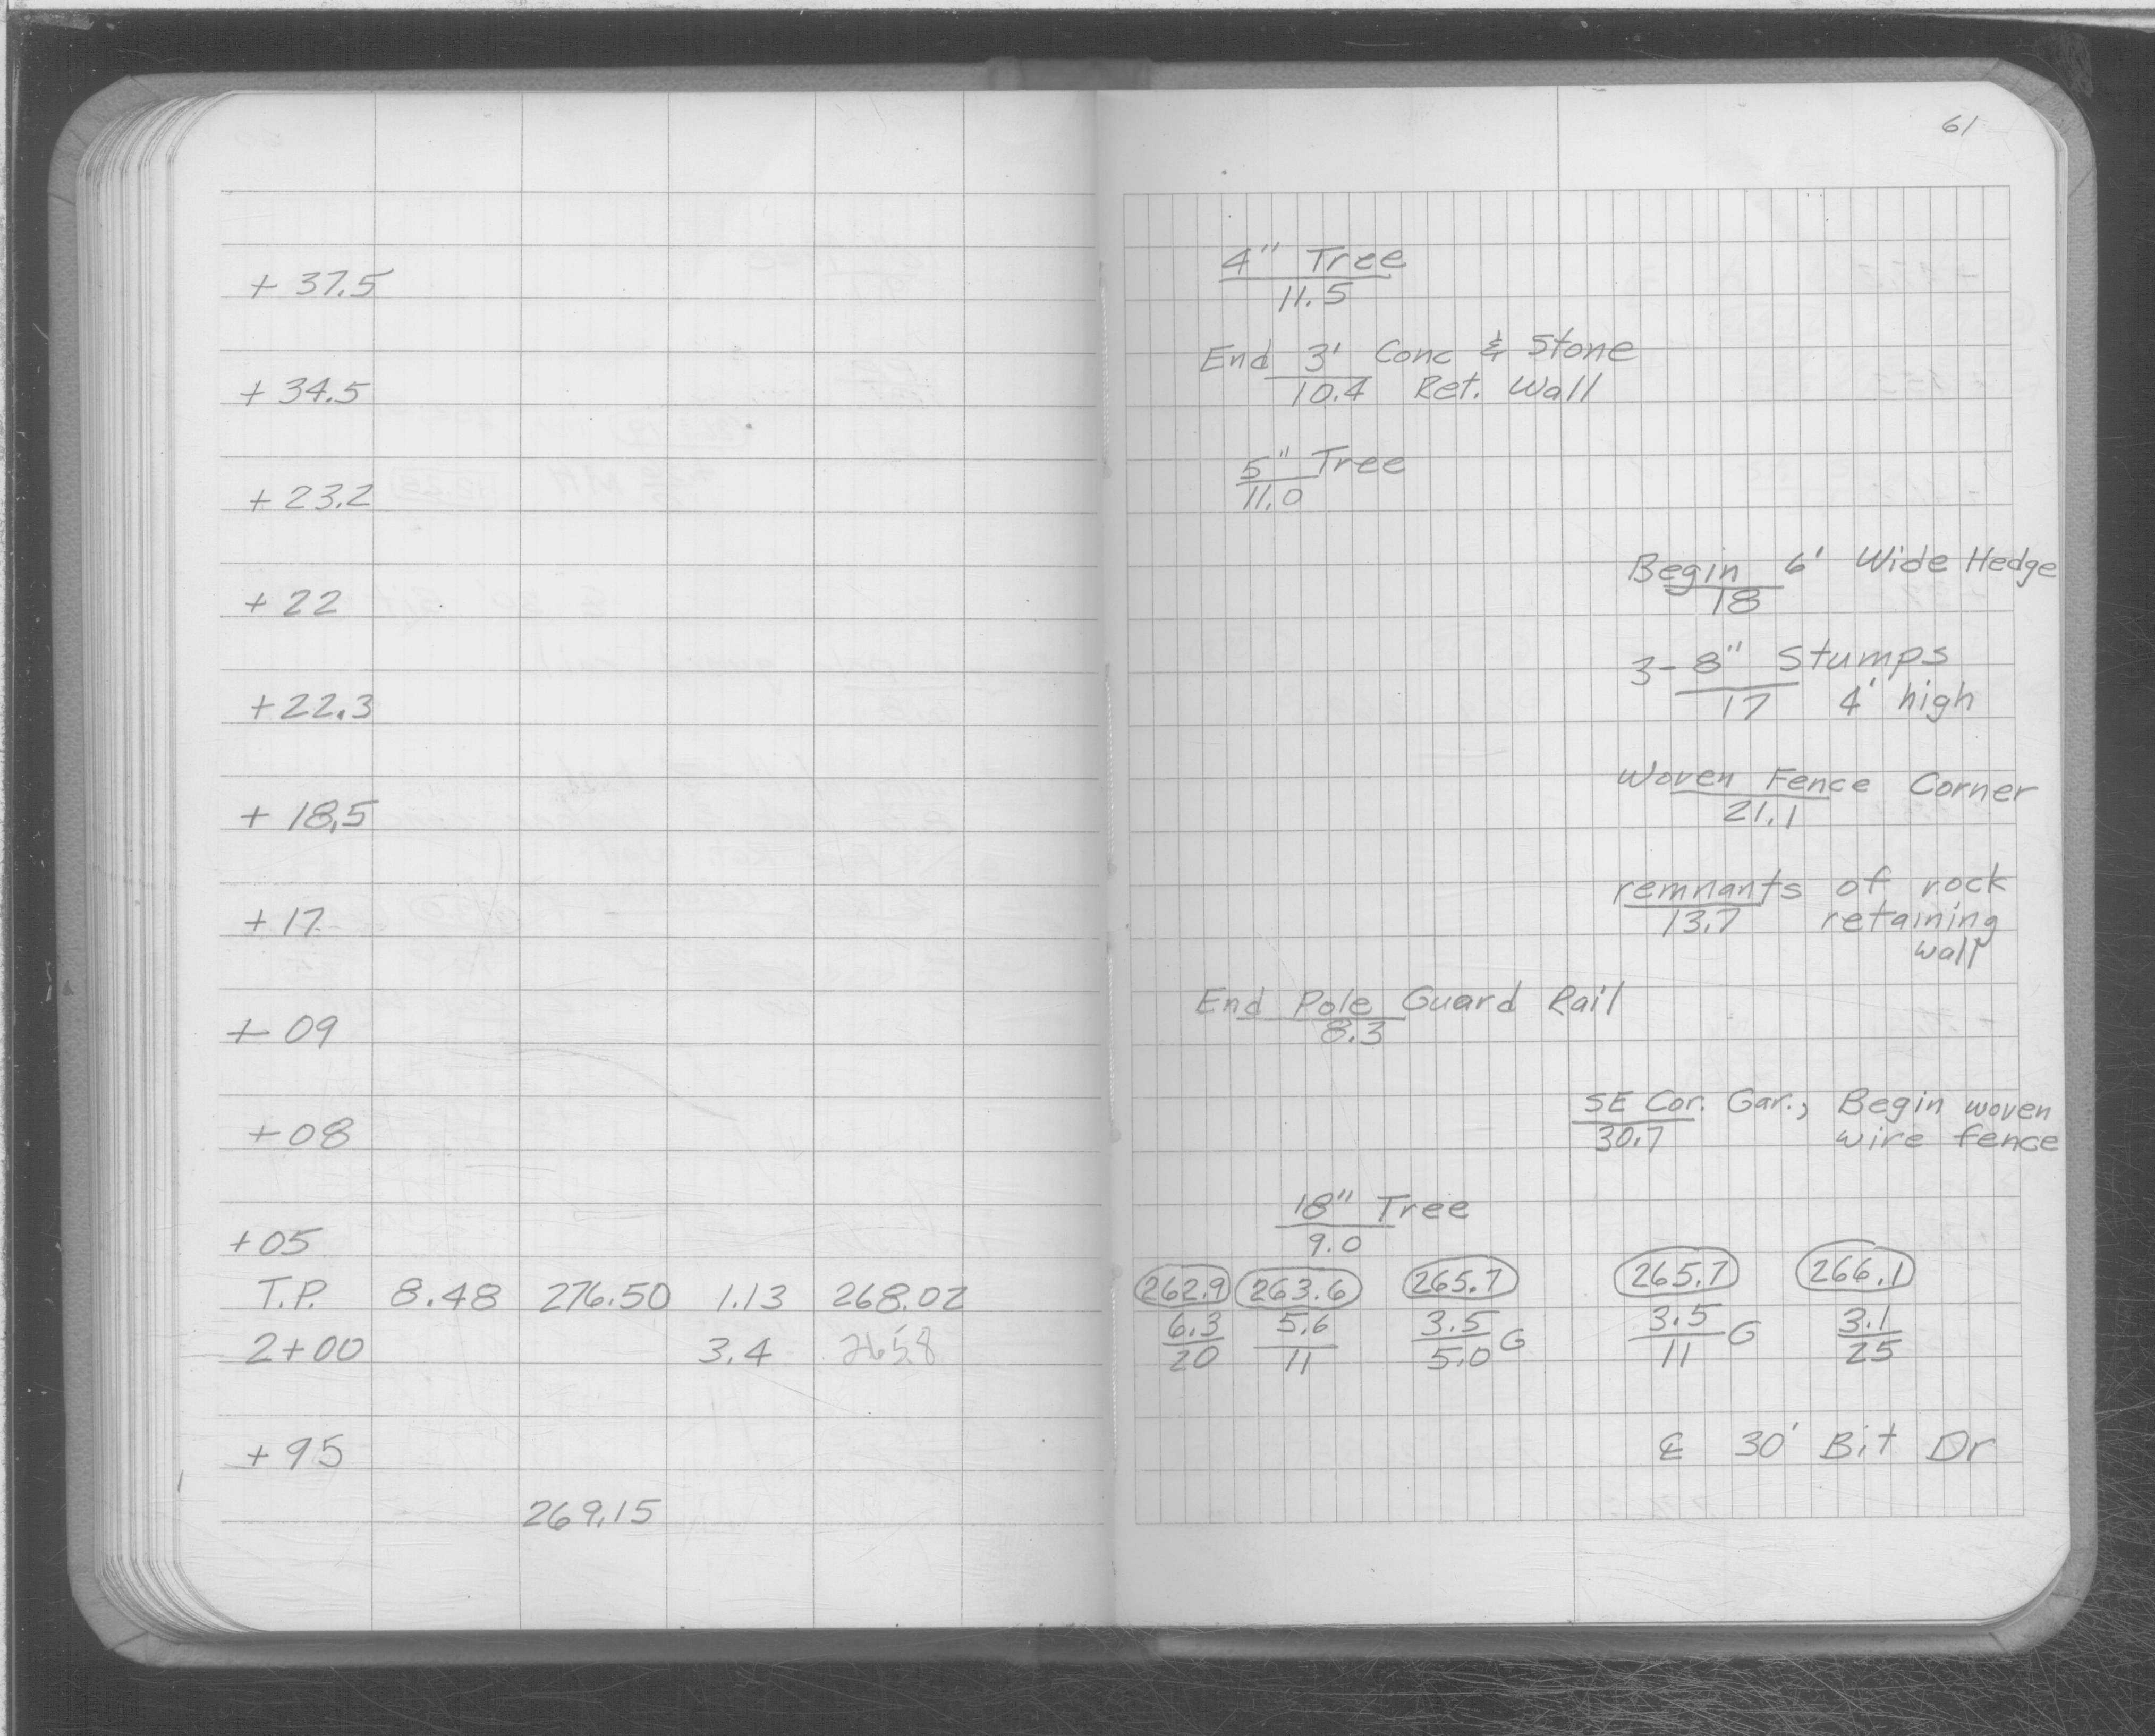 61
+ 37.5
4" Tree
11.5
+ 34.5
End 3' Conc & Stone
10.4 Ret. Wall
+ 23.2
5" Tree
11.0
+ 22
Begin 6' Wide Hedge
18
+22.3
3-8" Stumps
17 4' high
+ 18.5
Woven Fence Corner
21.1
+ 17
remnants of rock
13.7 retaining
wall
+ 09
End Pole Guard Rail
8.3
+08
SE Cor. Gar., Begin woven
30.7 wire fence
+05
18" Tree
9.0
T.P. 8.48 276.50 1.13 268.02
262.9 263.6 265.7 265.7 266.1
2+00 3.4 265.8
6.3 5.6 3.5 G 3.5 G 3.1
20 11 5.0 11 25
+ 95
℄ 30' Bit Dr
269.15